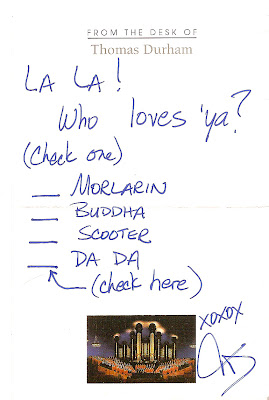 FROM THE DESK OF
Thomas Durham
LA LA!
Who loves 'ya?
(check one)
___ MORLARIN
___ BUDDHA
___ SCOOTER
___ DA DA
(check here)
XOXOX